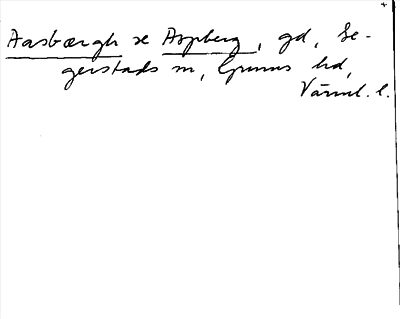 Aasbærgh se Aspberg, gd, Se-
gerstads sn, Grums hd,
Värml. l.